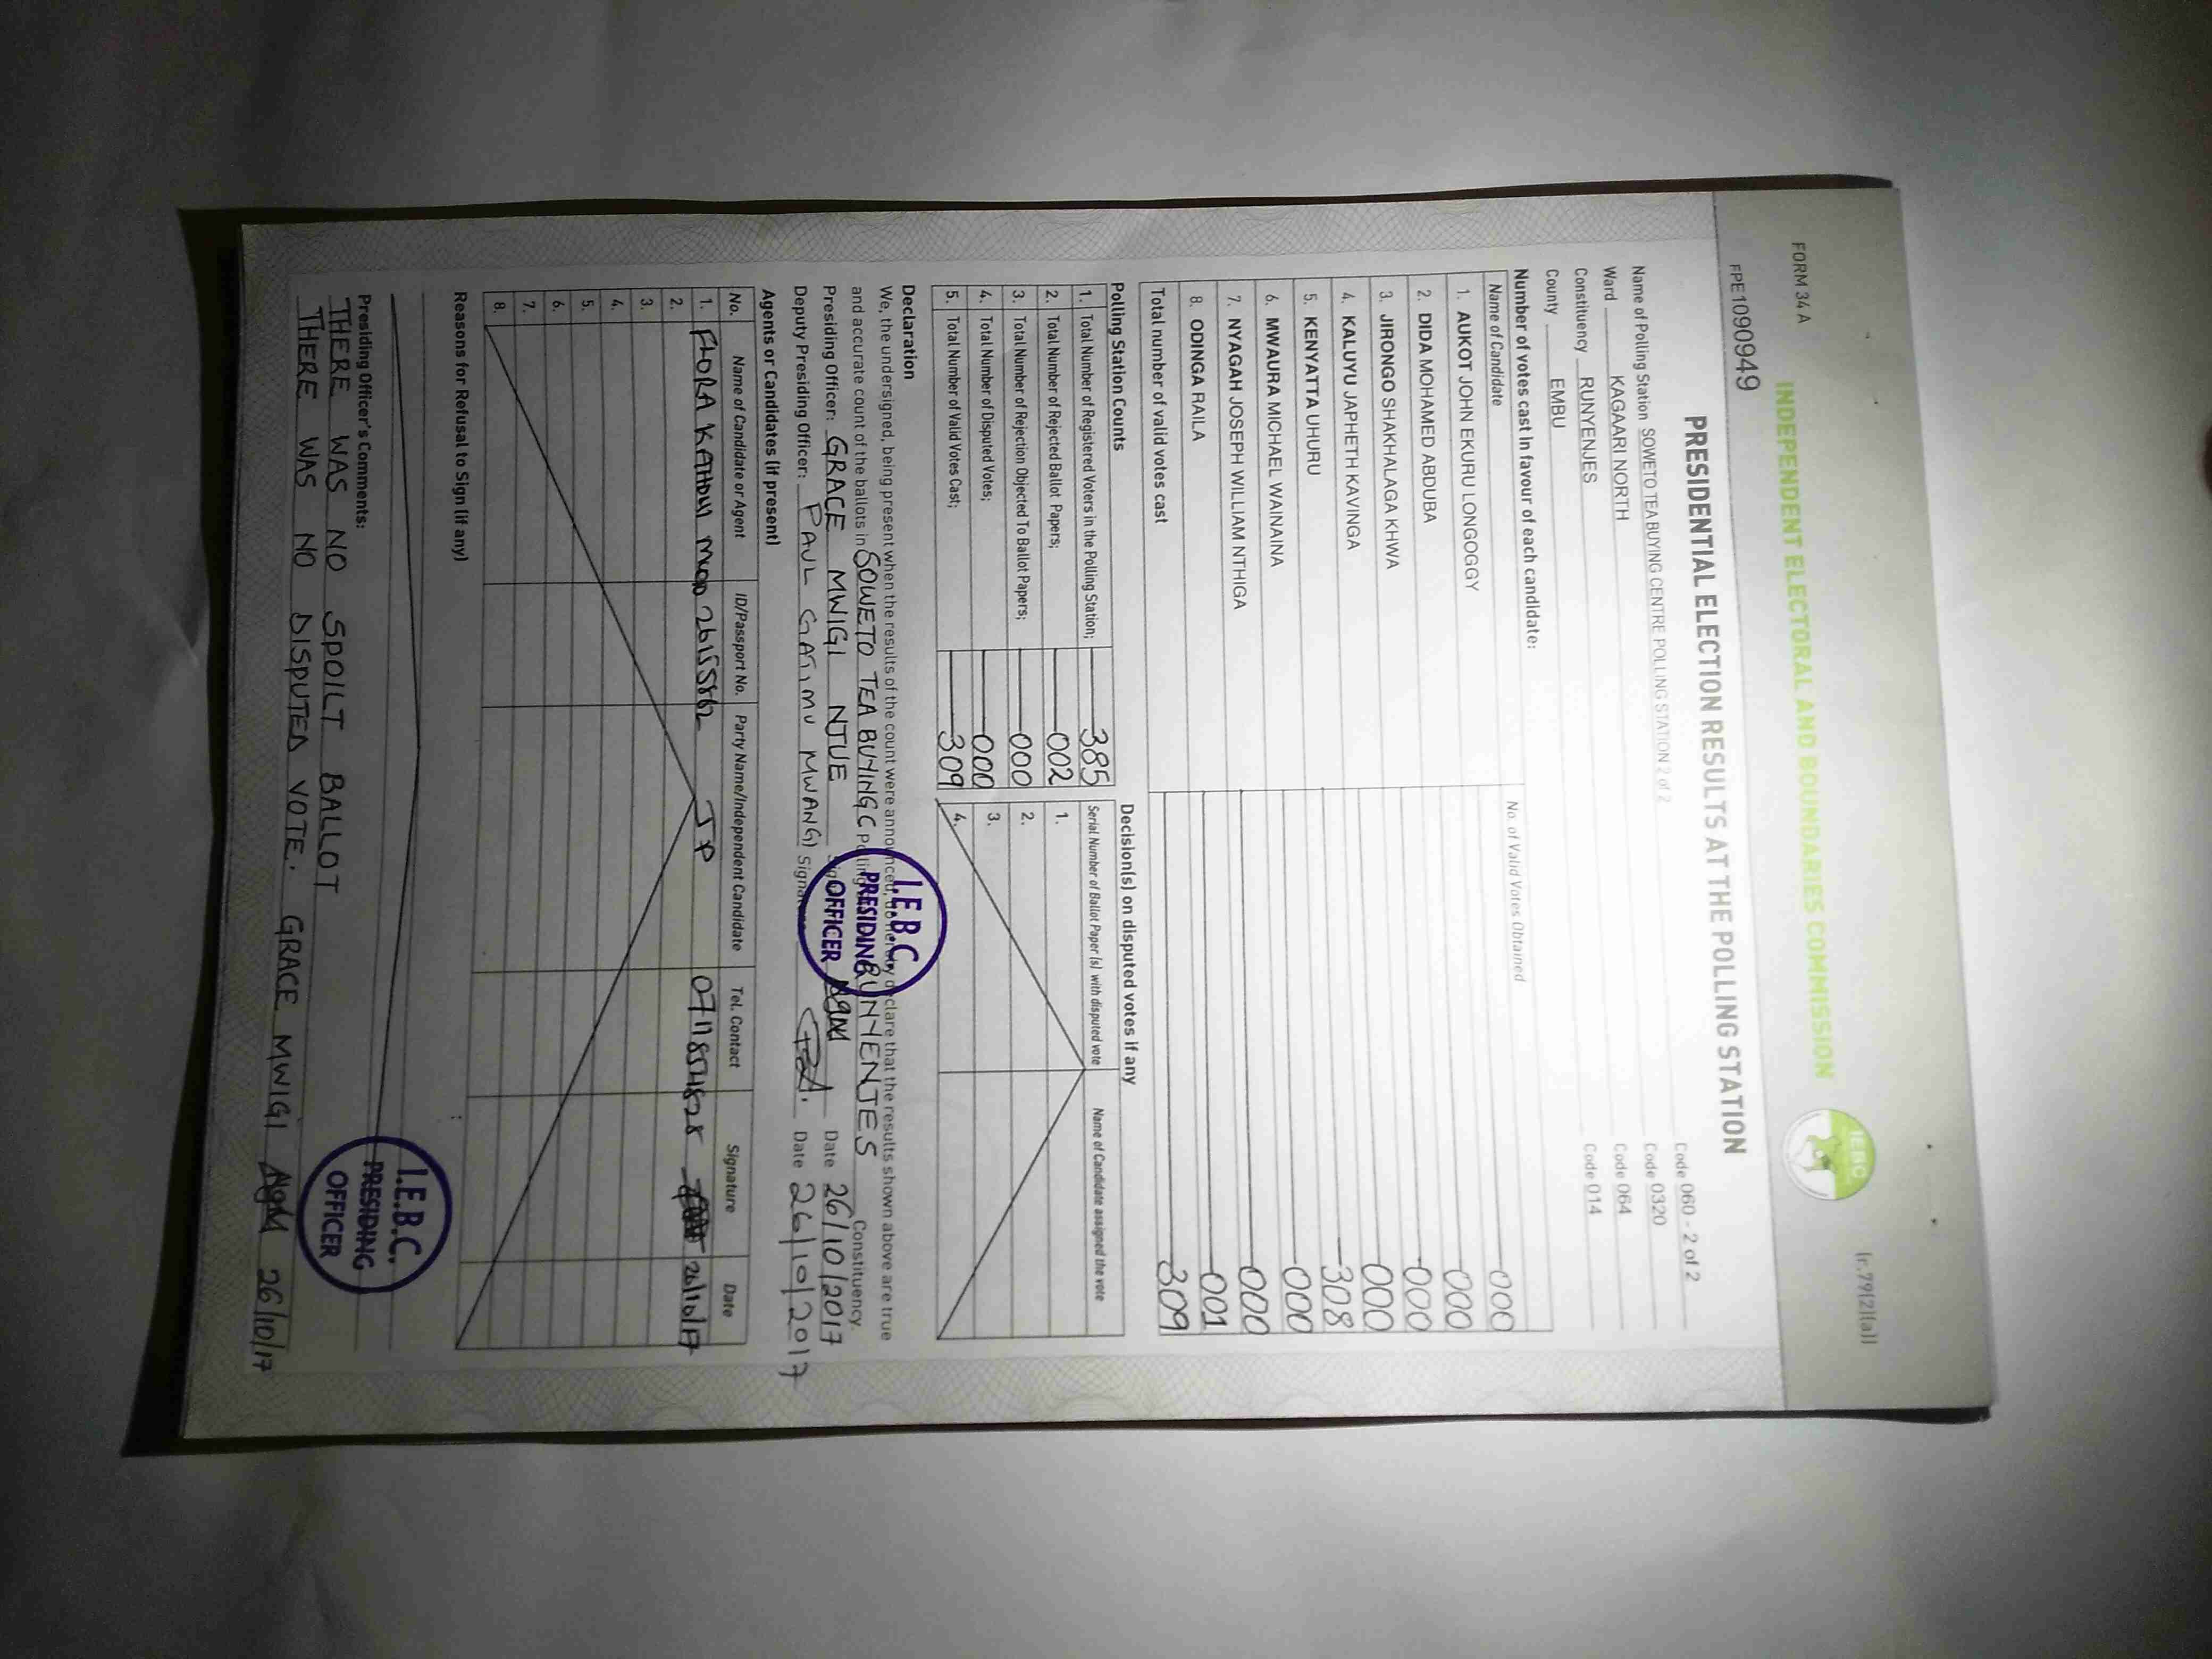 FORM 34 A
(r.79(2)(a))
INDEPENDENT ELECTORAL AND BOUNDARIES COMMISSION
IEBC
FPE1090949
PRESIDENTIAL ELECTION RESULTS AT THE POLLING STATION
Name of Polling Station SOWETO TEA BUYING CENTRE POLLING STATION 2 of 2 Code 060 - 2 of 2
Ward KAGAARI NORTH Code 0320
Constituency RUNYENJES Code 064
County EMBU Code 014
Number of votes cast in favour of each candidate:
Name of Candidate No. of Valid Votes Obtained
1. AUKOT JOHN EKURU LONGOGGY 000
2. DIDA MOHAMED ABDUBA 000
3. JIRONGO SHAKHALAGA KHWA 000
4. KALUYU JAPHETH KAVINGA 000
5. KENYATTA UHURU 308
6. MWAURA MICHAEL WAINAINA 000
7. NYAGAH JOSEPH WILLIAM NTHIGA 000
8. ODINGA RAILA 001
Total number of valid votes cast 309
Polling Station Counts
1. Total Number of Registered Voters in the Polling Station; 385
2. Total Number of Rejected Ballot Papers; 002
3. Total Number of Rejection Objected To Ballot Papers; 000
4. Total Number of Disputed Votes; 000
5. Total Number of Valid Votes Cast; 309
Decision(s) on disputed votes if any
Serial Number of Ballot Paper (s) with disputed vote Name of Candidate assigned the vote
1.
2.
3.
4.
Declaration
We, the undersigned, being present when the results of the count were announced, do hereby declare that the results shown above are true
and accurate count of the ballots in SOWETO TEA BUYING C Polling RUNYENJES Constituency.
Presiding Officer: GRACE MWIGI NJUE Date 26/10/2017
Deputy Presiding Officer: PAUL GATIMU MWANGI Signature Date 26/10/2017
I.E.B.C
PRESIDING
OFFICER
Agents or Candidates (if present)
No. Name of Candidate or Agent ID/Passport No. Party Name/Independent Candidate Tel. Contact Signature Date
1. FLORA 26155862 JP 26/10/17
2.
3.
4.
5.
6.
7.
8.
Reasons for Refusal to Sign (if any)
Presiding Officer's Comments:
THERE WAS NO SPOILT BALLOT
THERE WAS NO DISPUTED VOTE. GRACE MWIGI 26/10/17
I.E.B.C.
PRESIDING
OFFICER